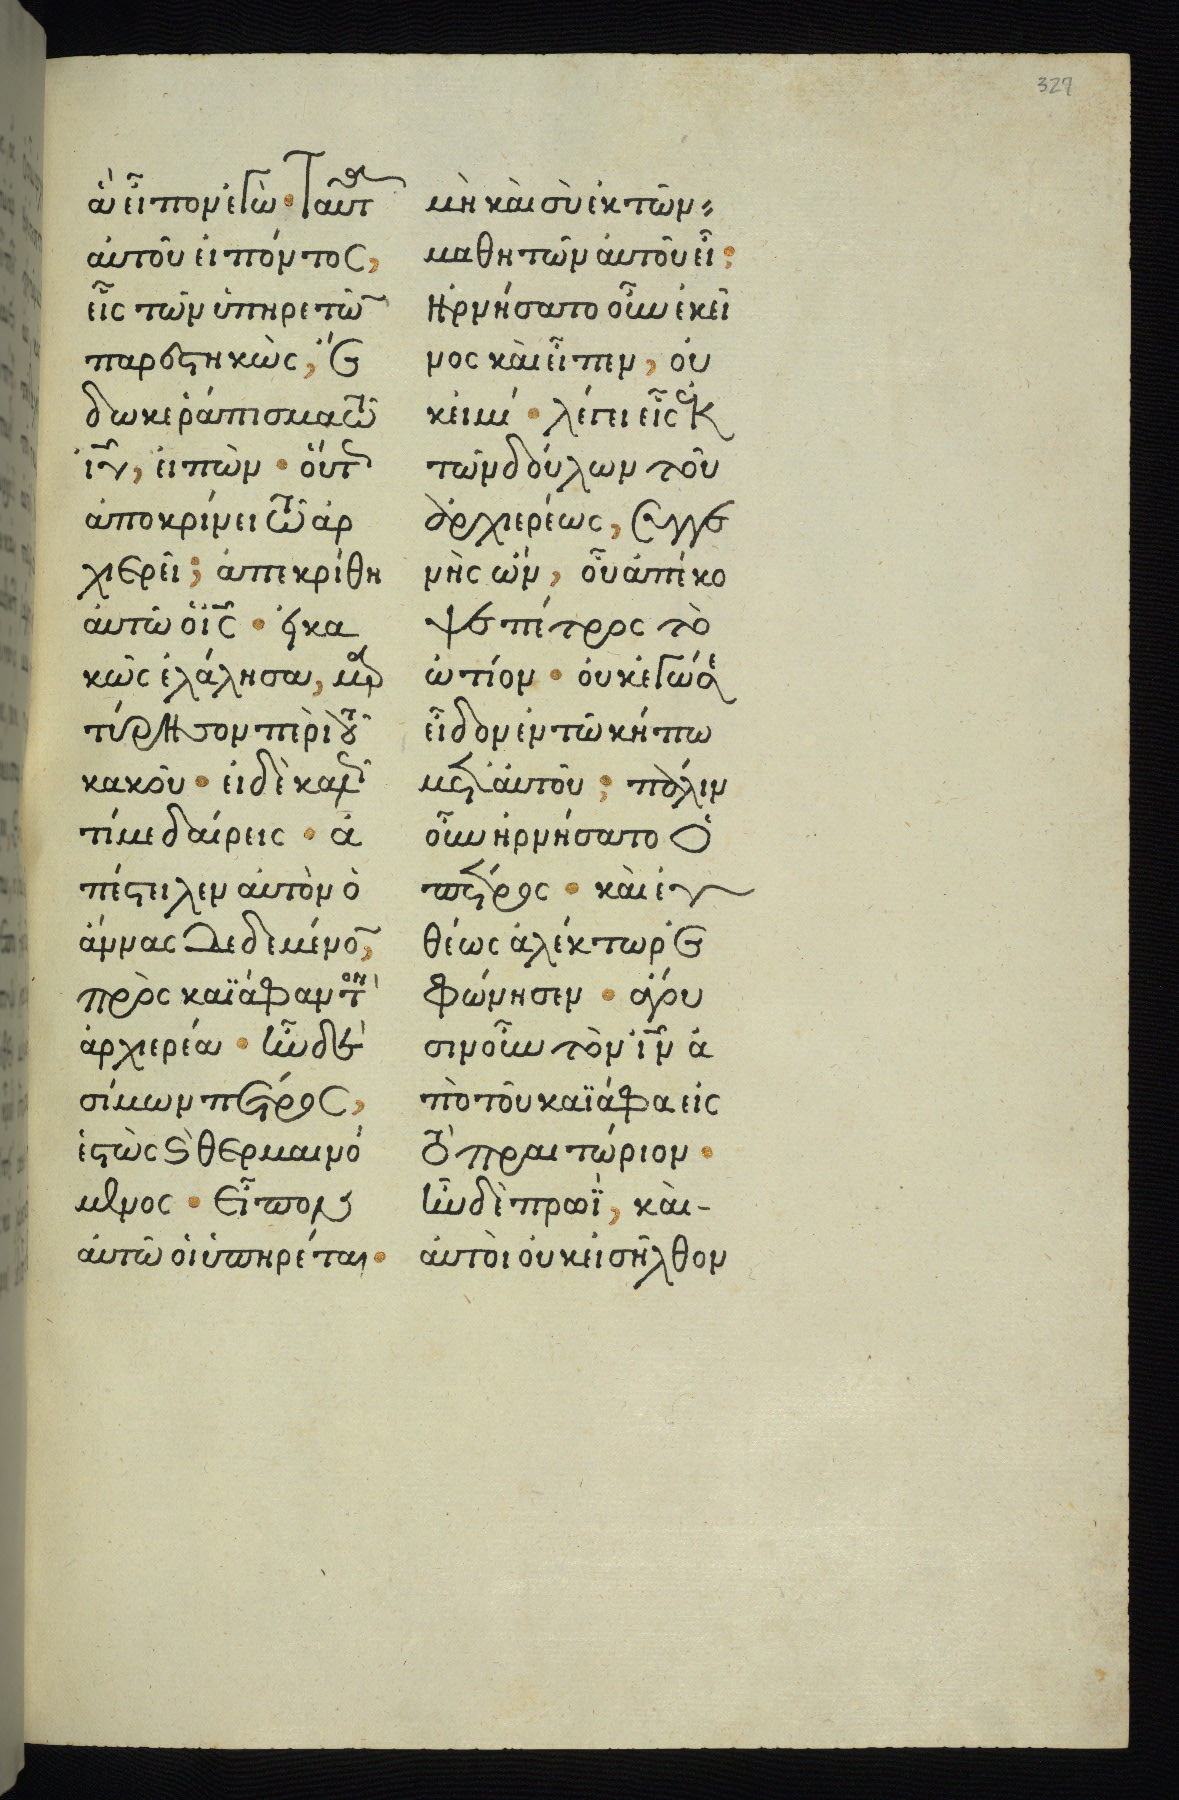 327
ἃ εἶπον ἐγὼ· Ταῦτ
αὐτοῦ εἰπόντος,
εἷς τῶν ὑπηρετῶ
παρεστηκὼς, ἔ
δωκε ῥάπισμα τῶ
ἰῦ, εἰπὼν· οὕτ
ἀποκρίνει τῶ ἀρ
χιερεῖ; ἀπεκρίθη
αὐτῶ ὁ ἰς· εἰ κα
κῶς ἐλάλησα, μαρ
τύρησον περὶ τοῦ
κακοῦ· εἰ δὲ καλ
τί με δαίρεις· ἀ
πέστειλεν αὐτὸν ὁ
ἄννας δεδεμένο,
πρὸς καϊάφαν τὸν
ἀρχιερέα· ἦν δὲ
σίμων πέτρος,
ἑστὼς καὶ θερμαινό
μενος· εἶπον
αὐτῶ οἱ ὑπηρέται·
μὴ καὶ σὺ ἐκ τῶν
μαθητῶν αὐτοῦ εἶ;
Ἠρνήσατο οὖν ἐκεῖ
νος καὶ εἶπεν, οὐ
κ εἰμί· λέγει εἷς ἐκ
τῶν δούλων τοῦ
ἀρχιερέως, συγγε
νὴς ὢν, οὗ ἀπέκο
ψε πέτρος τὸ
ὠτίον· οὐκ ἐγώ σε
εἶδον ἐν τῶ κήπω
μετ αὐτοῦ; πάλιν
οὖν ἠρνήσατο ὁ
πέτρος· καὶ εὐ
θέως ἀλέκτωρ ἐ
φώνησεν· ἄγου
σιν οὖν τὸν ἰν ἀ
πὸ τοῦ καϊάφα εἰς
τὸ πραιτώριον·
ἦν δὲ πρωΐ, καὶ-
αὐτοὶ οὐκ εἰσῆλθον